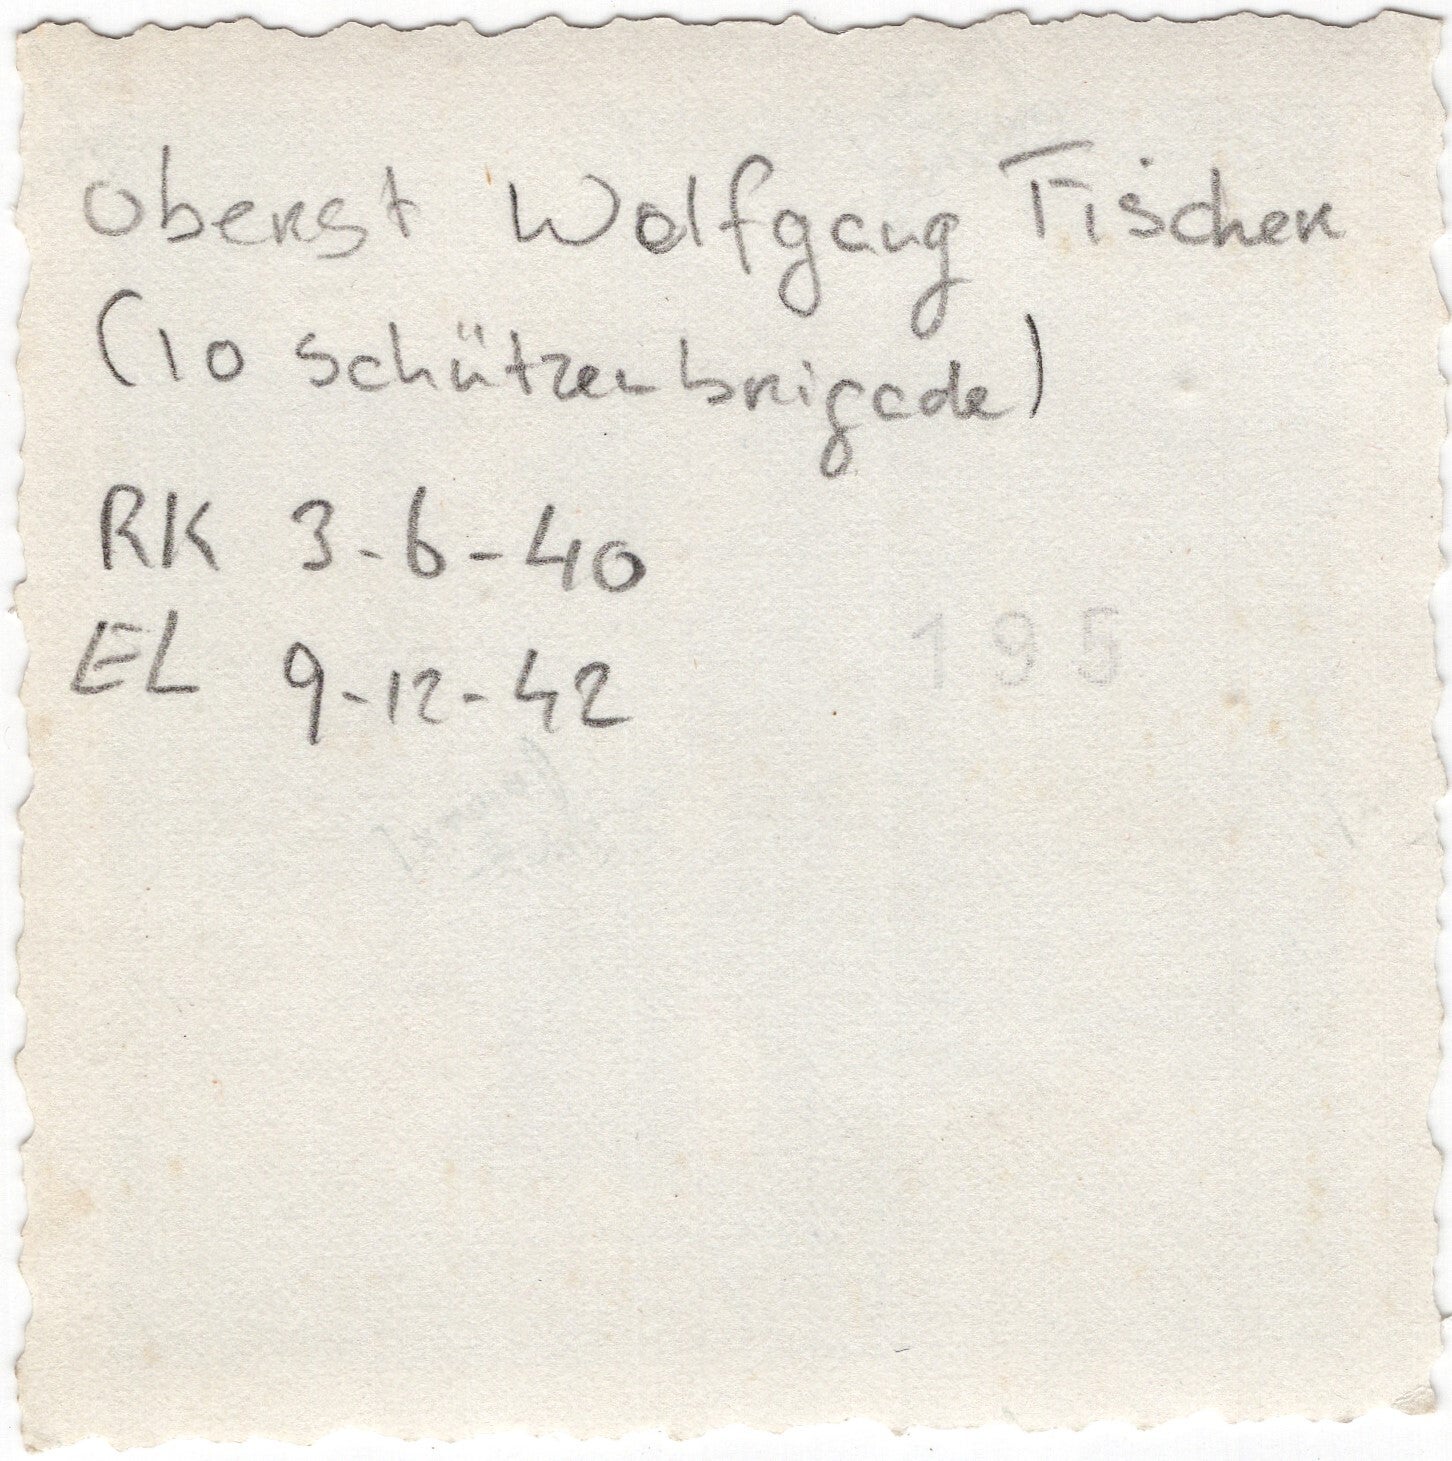 Oberst Wolfgang Fischer
(10 Schützenbrigade)
RK 3-6-40
EL 9-12-42
195